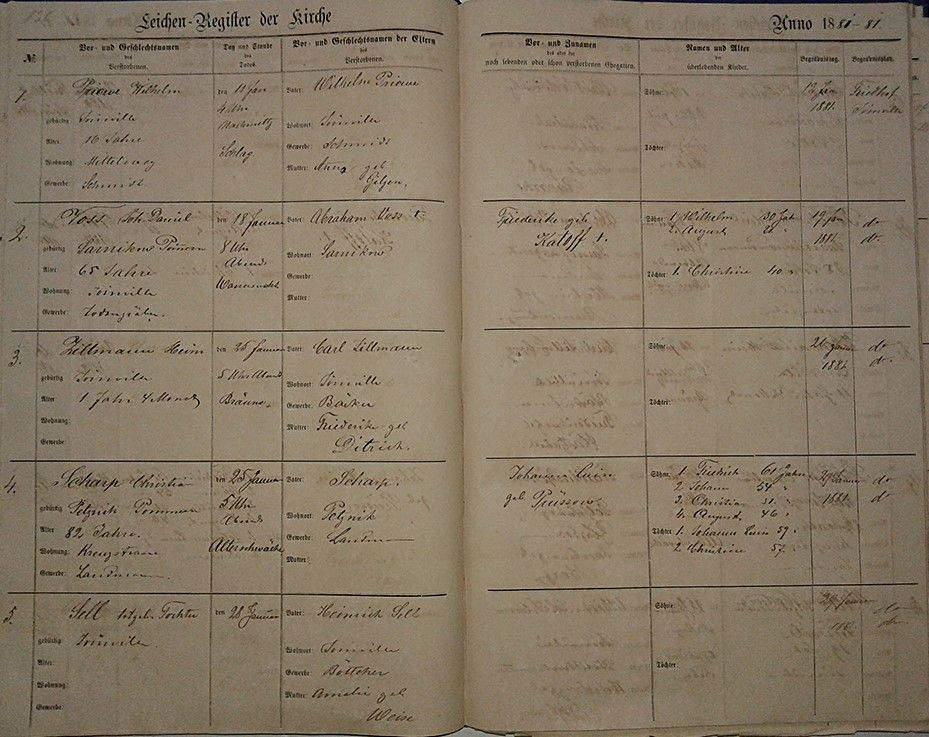 Leichen-Register der Kirche
Anno 1881-81.
№
Vor- und Geschlechtsnamen
des
Verstorbenen.
Tag und Stunde
des
Todes.
Vor- und Geschlechtsnamen der Eltern
des
Verstorbenen.
Vor- und Zunamen
des oder der
noch lebenden oder schon verstorbenen Ehegatten.
Namen und Alter
der
überlebenden Kinder.
Begräbnißtag.
Begräbnißplatz.
1.
Wilhelm
gebürtig Joinville
Alter: 16 Jahre
Wohnung: Mittelweg
Gewerbe: Schmidt
den 11 Jan
4 Uhr
Nachmittg
Schlag
Vater: Wilhelm
Wohnort: Joinville
Gewerbe: Schmidt
Mutter: Anna geb
Söhne:
Töchter:
1881.
Friedhof
Joinville
2.
Voss Joh. Daniel
gebürtig
Alter 65 Jahre
Wohnung: Joinville
Gewerbe: Todengräber.
den 18 Januar
8 Uhr
Abends
Vater: Abraham Voss †
Wohnort:
Gewerbe:
Mutter:
Friederike geb
†.
Söhne 1. Wilhelm 30 Jah
2. August
Töchter 1. Christine 40 "
19 Jan
1881
do
do.
3.
Zillmann
gebürtig Joinville
Alter 1 Jahr 4 Monat
Wohnung:
Gewerbe:
den 25 Januar
5 Uhr Abend
Bräune.
Vater: Carl Zillmann
Wohnort: Joinville
Gewerbe: Bäcker
Mutter: Friederike geb
Ditrich.
Söhne:
Töchter:
26 Januar
1881
do
do.
4.
Scharp Christia
gebürtig Pommern
Alter 82 Jahre.
Wohnung:
Gewerbe: Landmann.
den 25 Januar
5 Uhr
Abends
Altersschwäche
Vater: Scharp.
Wohnort:
Gewerbe: Landmann
Mutter:
Johanne
geb.
Söhne 1. Friedrich 61 Jahre
2. Johann 54
3. Christian 51 "
4. August 46 "
Töchter 1. Johanne 59 "
2. Christine 57 "
Januar
1881
do
do
5.
Sell Tochter
gebürtig Joinville
Alter:
Wohnung:
Gewerbe:
den 28 Januar
Vater: Heinrich Sell
Wohnort: Joinville
Gewerbe: Böttcher
Mutter: Amalie geb
Weise
Söhne:
Töchter:
29 Januar
do
do.